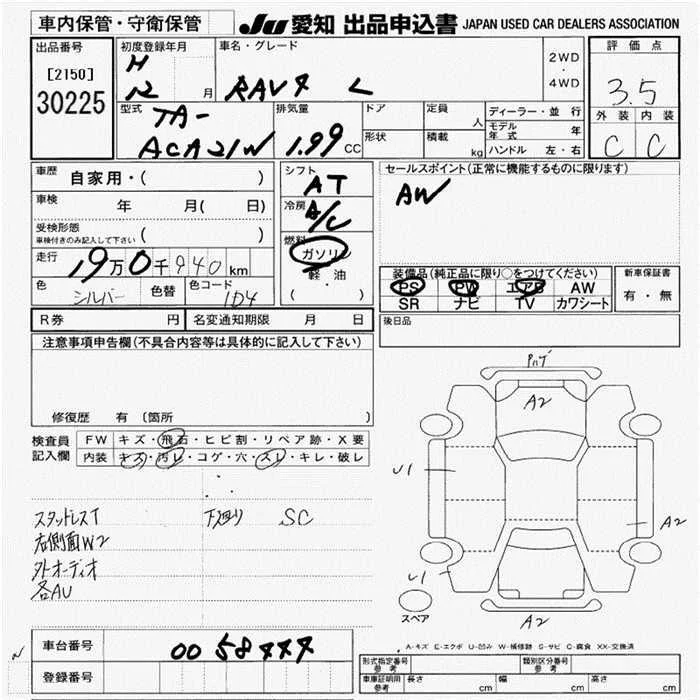 車内保管・守衛保管
JU 愛知 出品申込書 JAPAN USED CAR DEALERS ASSOCIATION
出品番号
[2150]
30225
初度登録年月
H
12 月
車名・グレード
RAV4 L
2WD
・
4WD
評価点
3.5
外装 内装
C C
型式
TA-
ACA21W
排気量
1.99 CC
ドア
定員
人
形状
積載
kg
ディーラー・並行
モデル年式 年
ハンドル 左・右
車歴
自家用・( )
車検
年 月( 日)
受検形態
車検付きのみ記入して下さい ( )
走行
19万0千940km
色
シルバー
色替
色コード
1D4
シフト
AT
冷房
A/C
燃料
ガソリン
・
軽油
( ・ )
セールスポイント(正常に機能するものに限ります)
AW
装備品(純正品に限り○をつけてください)
PS PW エアB AW
SR ナビ TV カワシート
新車保証書
有・無
後日品
R券 円
名変通知期限 月 日
注意事項申告欄(不具合内容等は具体的に記入して下さい)
修復歴 有 〔箇所
検査員
記入欄
FW キズ・飛石・ヒビ割・リペア跡・X要
内装 キズ・汚レ・コゲ・穴・スレ・キレ・破レ
スタッドレスT 下廻り SC
右側面W2
外オーディオ
各AU
A2
U1
A2
U1
スペア
A2
A-キズ E-エクボ U-凹み W-補修跡 S-サビ C-腐食 XX-交換済
車台番号
0058444
登録番号
形式指定番号
参考
類別区分番号
参考
車庫証明用
参考
長さ cm 幅 cm 高さ cm